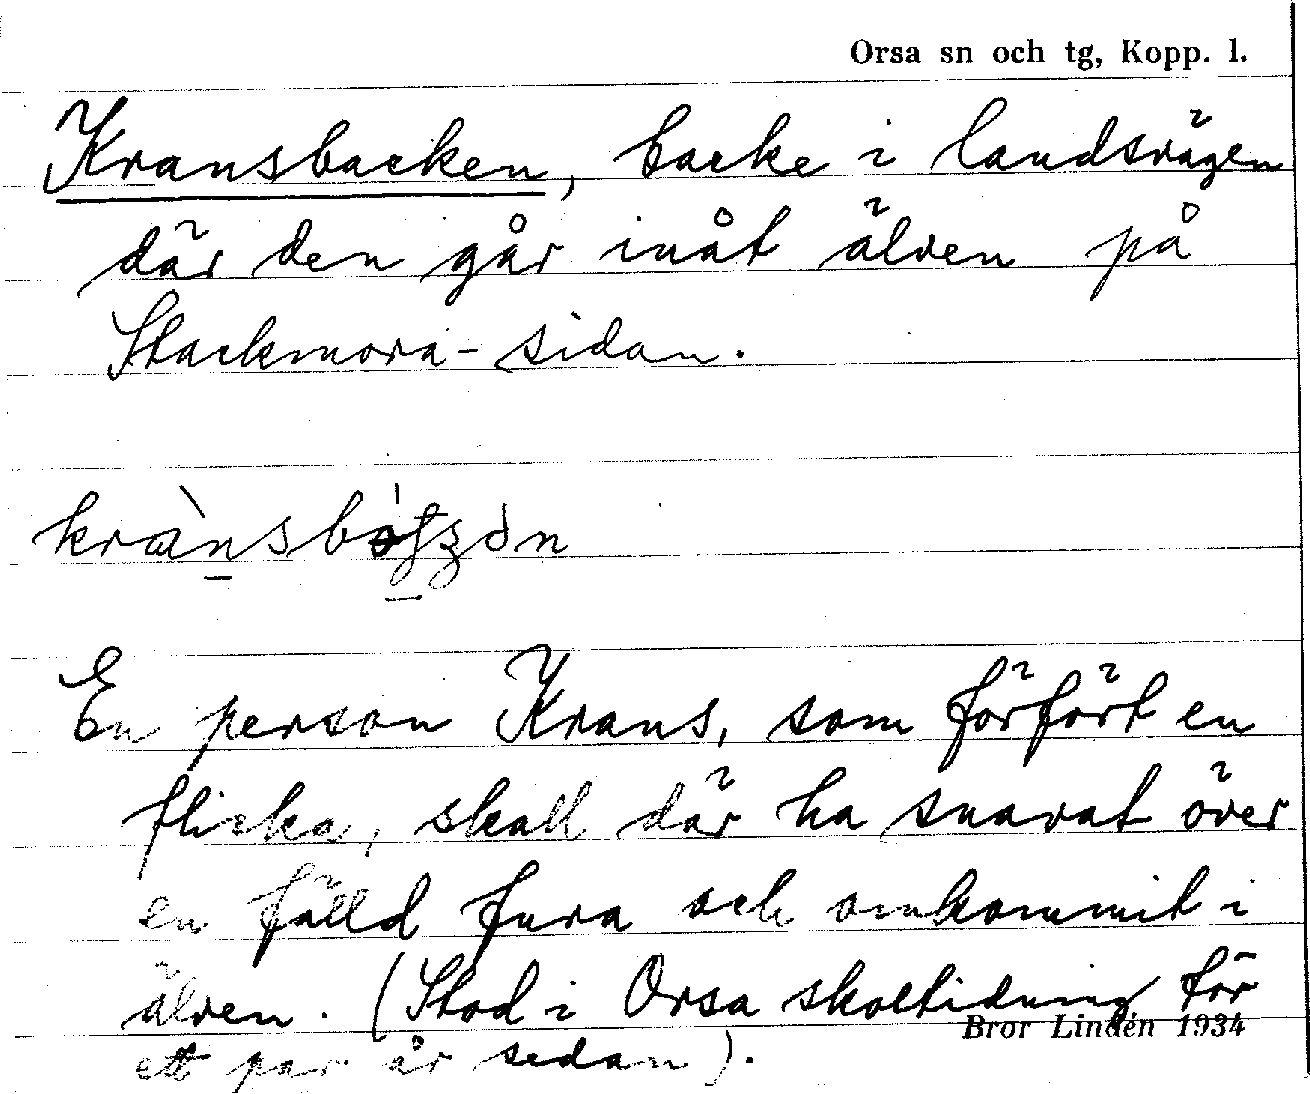 Orsa sn och tg, Kopp. l.
Kransbacken, backe i landsvägen
där den går inåt älven på
Stackmora-sidan.
En person Krans, som förfört en
flicka, skall där ha snavat över
en fälld fura och omkommit i
älven. (Stod i Orsa skoltidning för
Bror Lindén 1934
ett par år sedan).